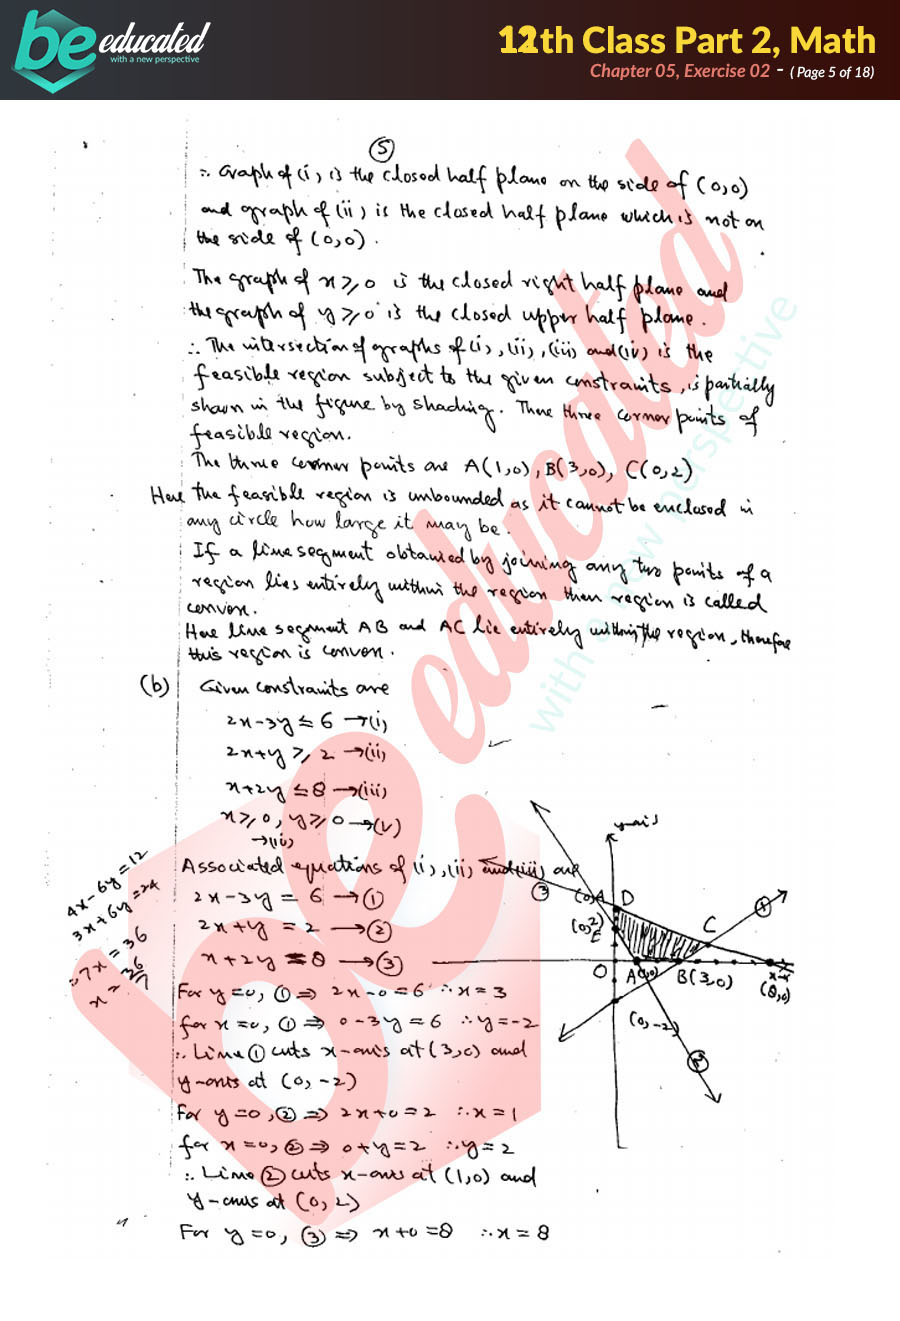 be educated
with a new perspective
12th Class Part 2, Math
Chapter 05, Exercise 02 - ( Page 5 of 18)
5
∴ Graph of (i) is the closed half plane on the side of (0,0)
and graph of (ii) is the closed half plane which is not on
the side of (0,0).
The graph of x ≥ 0 is the closed right half plane and
the graph of y ≥ 0 is the closed upper half plane.
∴ The intersection of graphs of (i), (ii), (iii) and (iv) is the
feasible region subject to the given constraints, is partially
shown in the figure by shading. There three corner points of
feasible region.
The three corner points are A(1,0), B(3,0), C(0,2)
Here the feasible region is unbounded as it cannot be enclosed in
any circle how large it may be.
If a line segment obtained by joining any two points of a
region lies entirely within the region then region is called
convex.
Here line segment AB and AC lie entirely within the region, therefore
this region is convex.
(b) Given constraints are
2x-3y ≤ 6 → (i)
2x+y ≥ 2 → (ii)
x+2y ≤ 8 → (iii)
x ≥ 0, y ≥ 0 → (v)
→ (iv)
Associated equations of (i), (ii) and (iii) are
2x-3y = 6 → ①
2x+y = 2 → ②
x+2y = 8 → ③
For y=0, ① ⇒ 2x-0=6 ∴ x=3
for x=0, ① ⇒ 0-3y=6 ∴ y=-2
∴ Line ① cuts x-axis at (3,0) and
y-axis at (0,-2)
For y=0, ② ⇒ 2x+0=2 ∴ x=1
for x=0, ② ⇒ 0+y=2 ∴ y=2
∴ Line ② cuts x-axis at (1,0) and
y-axis at (0,2)
For y=0, ③ ⇒ x+0=8 ∴ x=8
4x-6y=12
3x+6y=24
7x=36
x=36/7
y-axis
③
(0,4) D
(0,2)
E
C
①
O
A(1,0)
B(3,0)
(8,0)
(0,-2)
②
be educated
with a new perspective